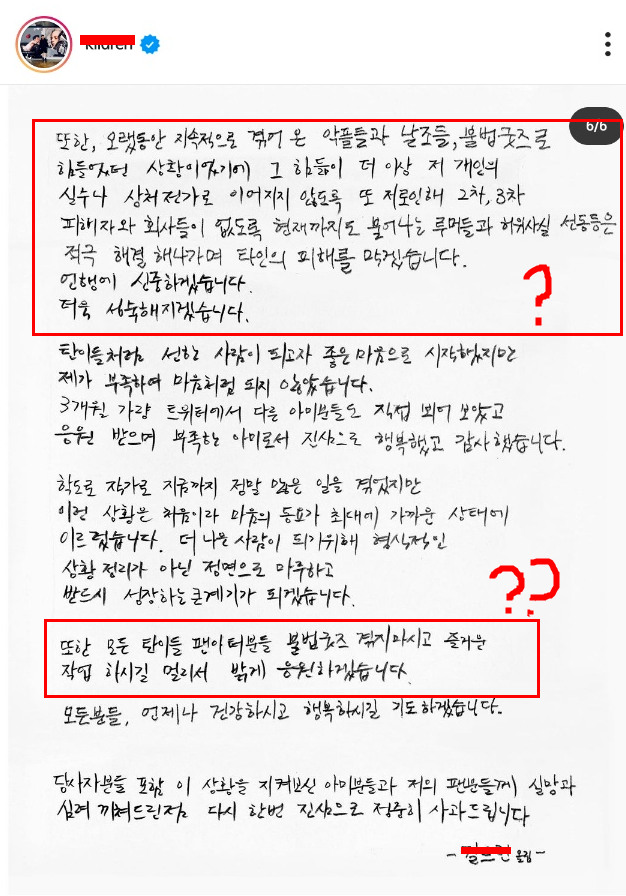 6/6
또한, 오랫동안 지속적으로 겪어 온 악플들과 날조들, 불법굿즈로
힘들었던 상황이었기에 그 힘듦이 더 이상 저 개인의
실수나 상처전가로 이어지지 않도록 또 저로인해 2차, 3차
피해자와 회사들이 없도록 현재까지도 불어나는 루머들과 허위사실 선동등은
적극 해결 해나가며 타인의 피해를 막겠습니다.
언행에 신중하겠습니다.
더욱 성숙해지겠습니다.
?
탄이들처럼 선한 사람이 되고자 좋은 마음으로 시작했지만
제가 부족하여 마음처럼 되지 않았습니다.
3개월 가량 트위터에서 다른 아미분들도 직접 뵈어 보았고
응원 받으며 부족한 아미로서 진심으로 행복했고 감사했습니다.
학도로 작가로 지금까지 정말 많은 일을 겪었지만
이런 상황은 처음이라 마음의 동요가 최대에 가까운 상태에
이르렀습니다. 더 나은 사람이 되기위해 형식적인
상황 정리가 아닌 정면으로 마주하고
반드시 성장하는 큰계기가 되겠습니다.
??
또한 모든 탄이들 팬아터분들 불법굿즈 겪지마시고 즐거운
작업 하시길 멀리서 밝게 응원하겠습니다.
모든분들, 언제나 건강하시고 행복하시길 기도하겠습니다.
당사자분들 포함 이 상황을 지켜보신 아미분들과 저의 팬분들께 실망과
심려 끼쳐드린점 다시 한번 진심으로 정중히 사과드립니다
- 올림 -